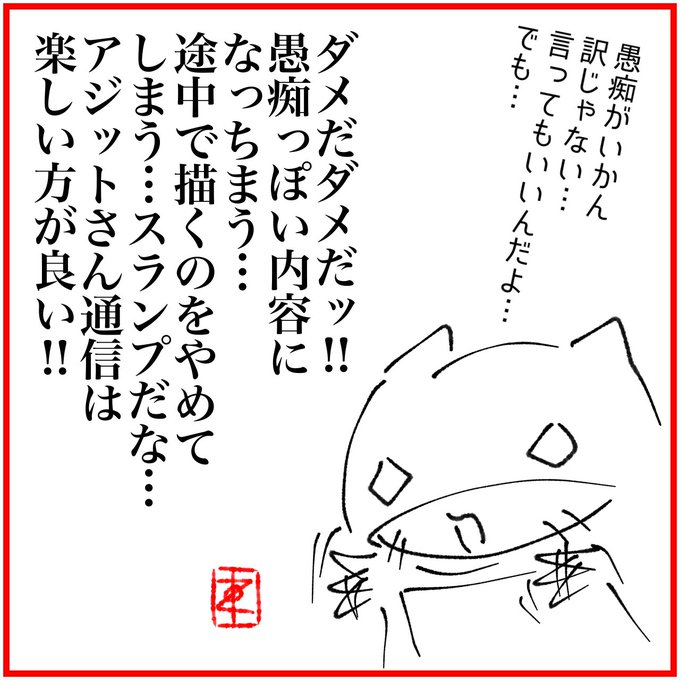 愚痴がいかん
訳じゃない…
言ってもいいんだよ…
でも…
ダメだダメだッ!!
愚痴っぽい内容に
なっちまう…
途中で描くのをやめて
しまう…スランプだな…
アジットさん通信は
楽しい方が良い!!